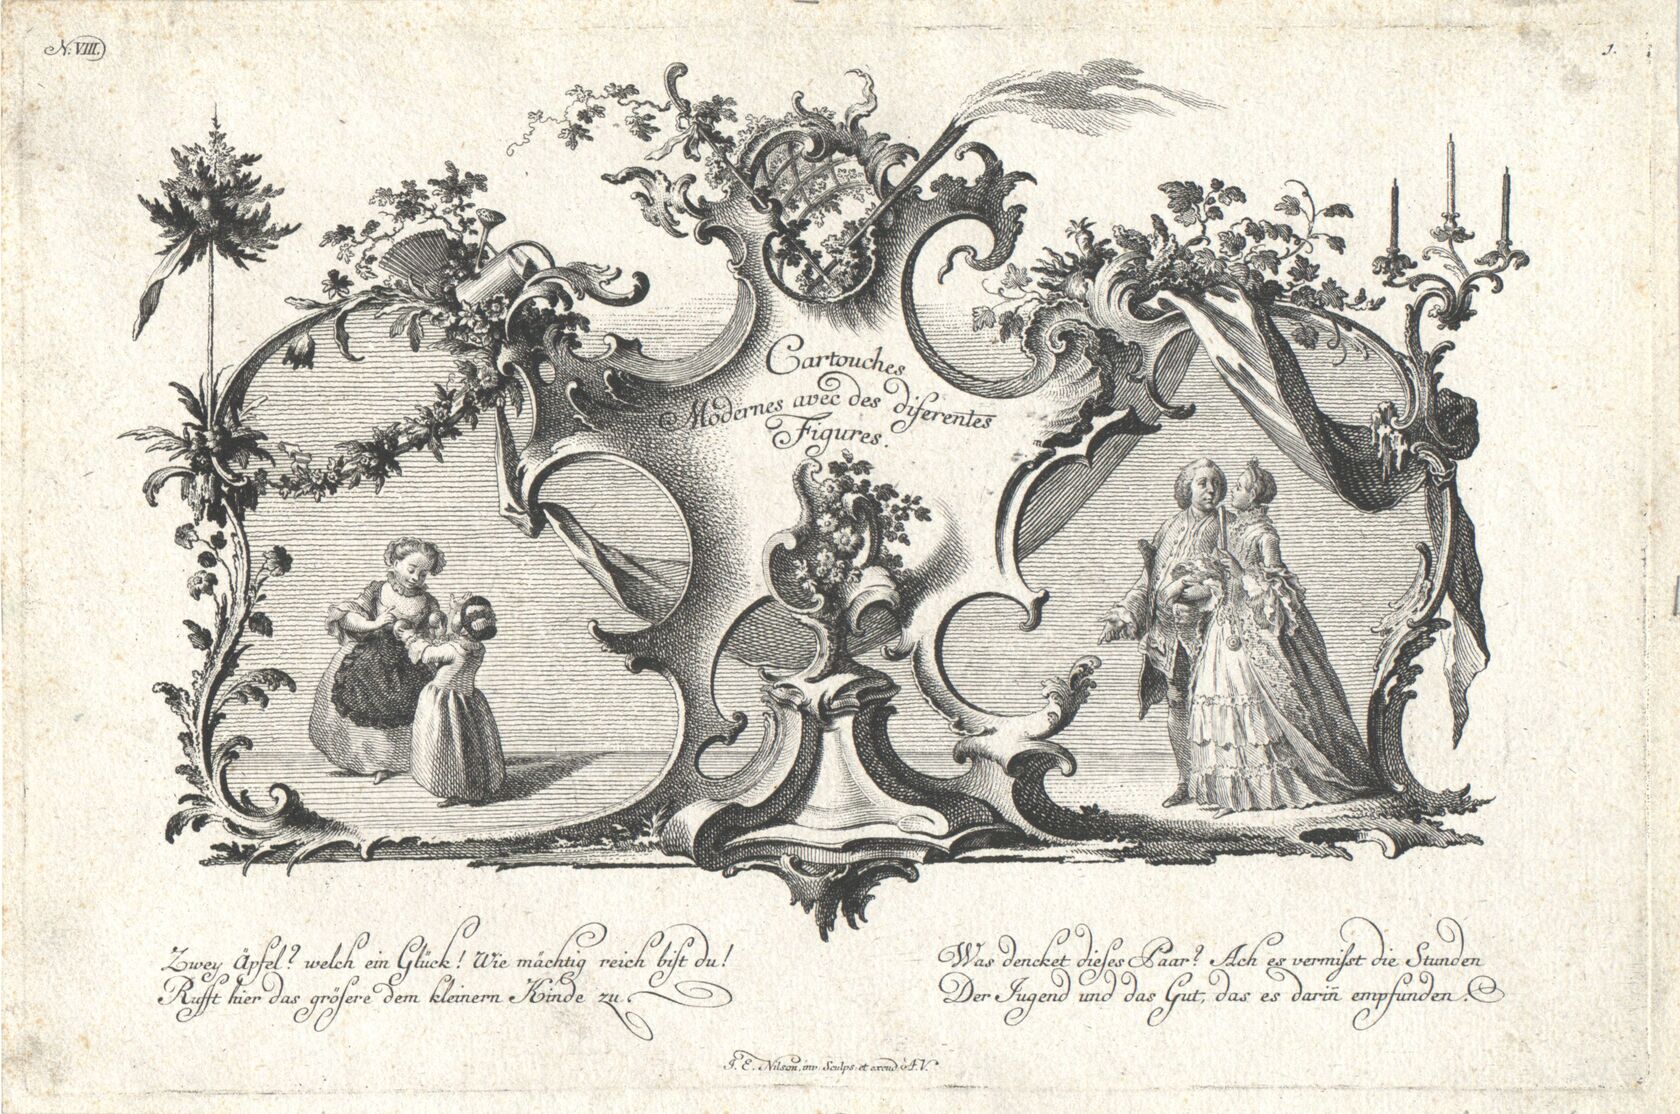 N. VIII.
1.
Cartouches
Modernes avec des diferentes
Figures.
Zwey Äpfel? welch ein Glück! Wie mächtig reich bist du!
Rufft hier das grösere dem kleinern Kinde zu.
Was dencket dieses Paar? Ach es vermisst die Stunden
Der Jugend und das Gut, das es darin̄ empfunden.
J. E. Nilson, inv. Sculps. et excud. A.V.